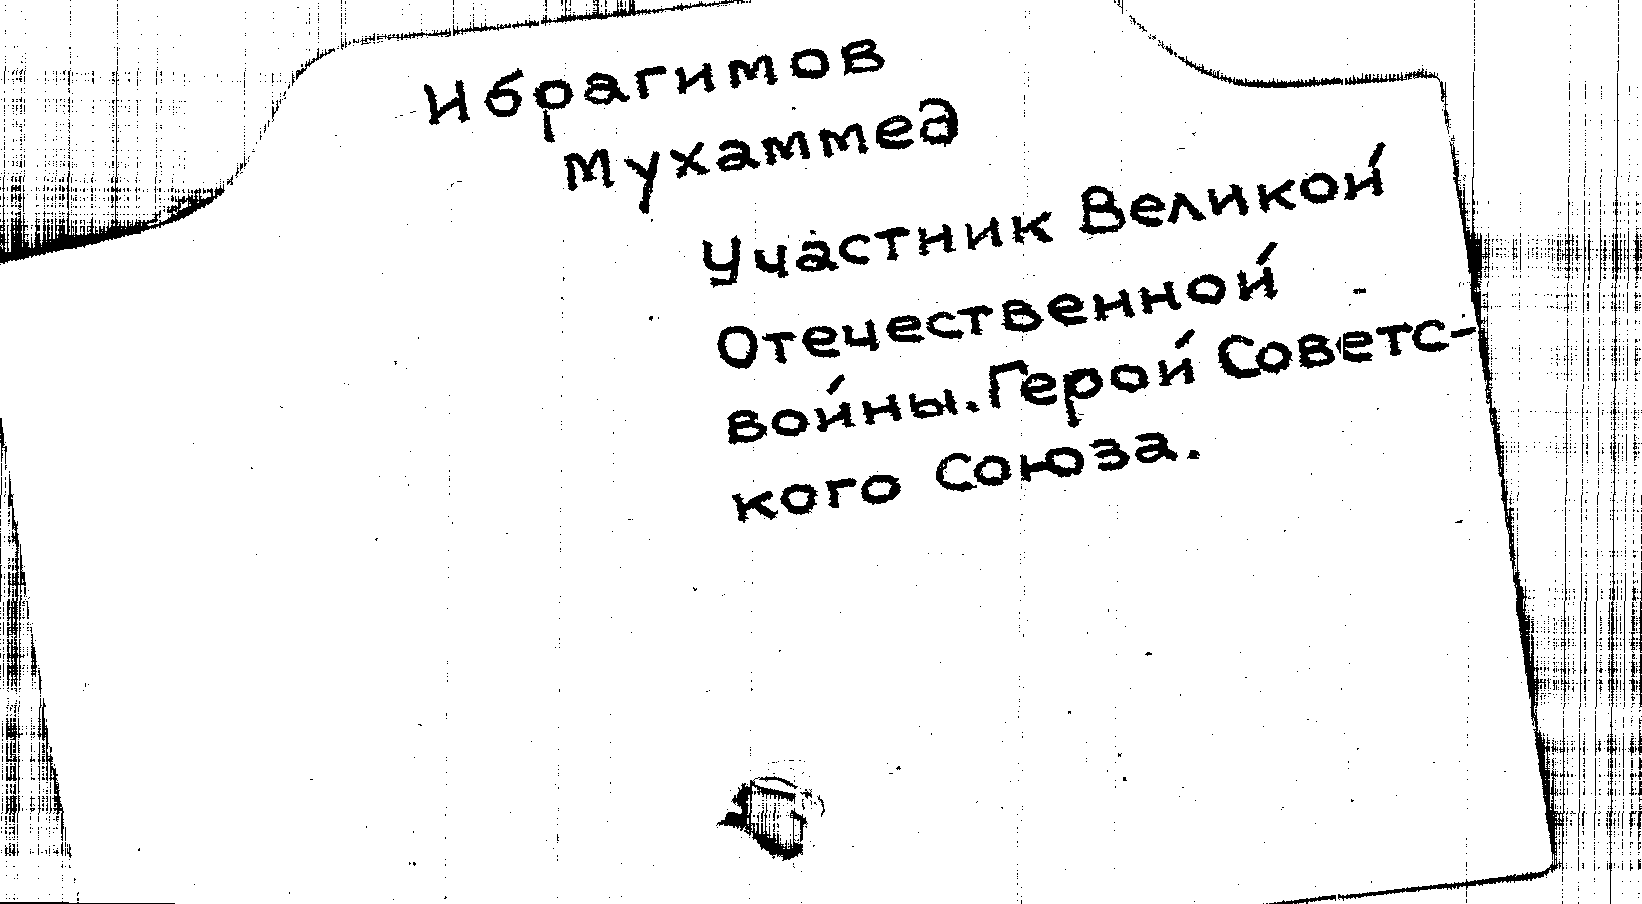 Ибрагимов
Мухаммед
Участник Великой
Отечественной
войны. Герой Советс-
кого Союза.